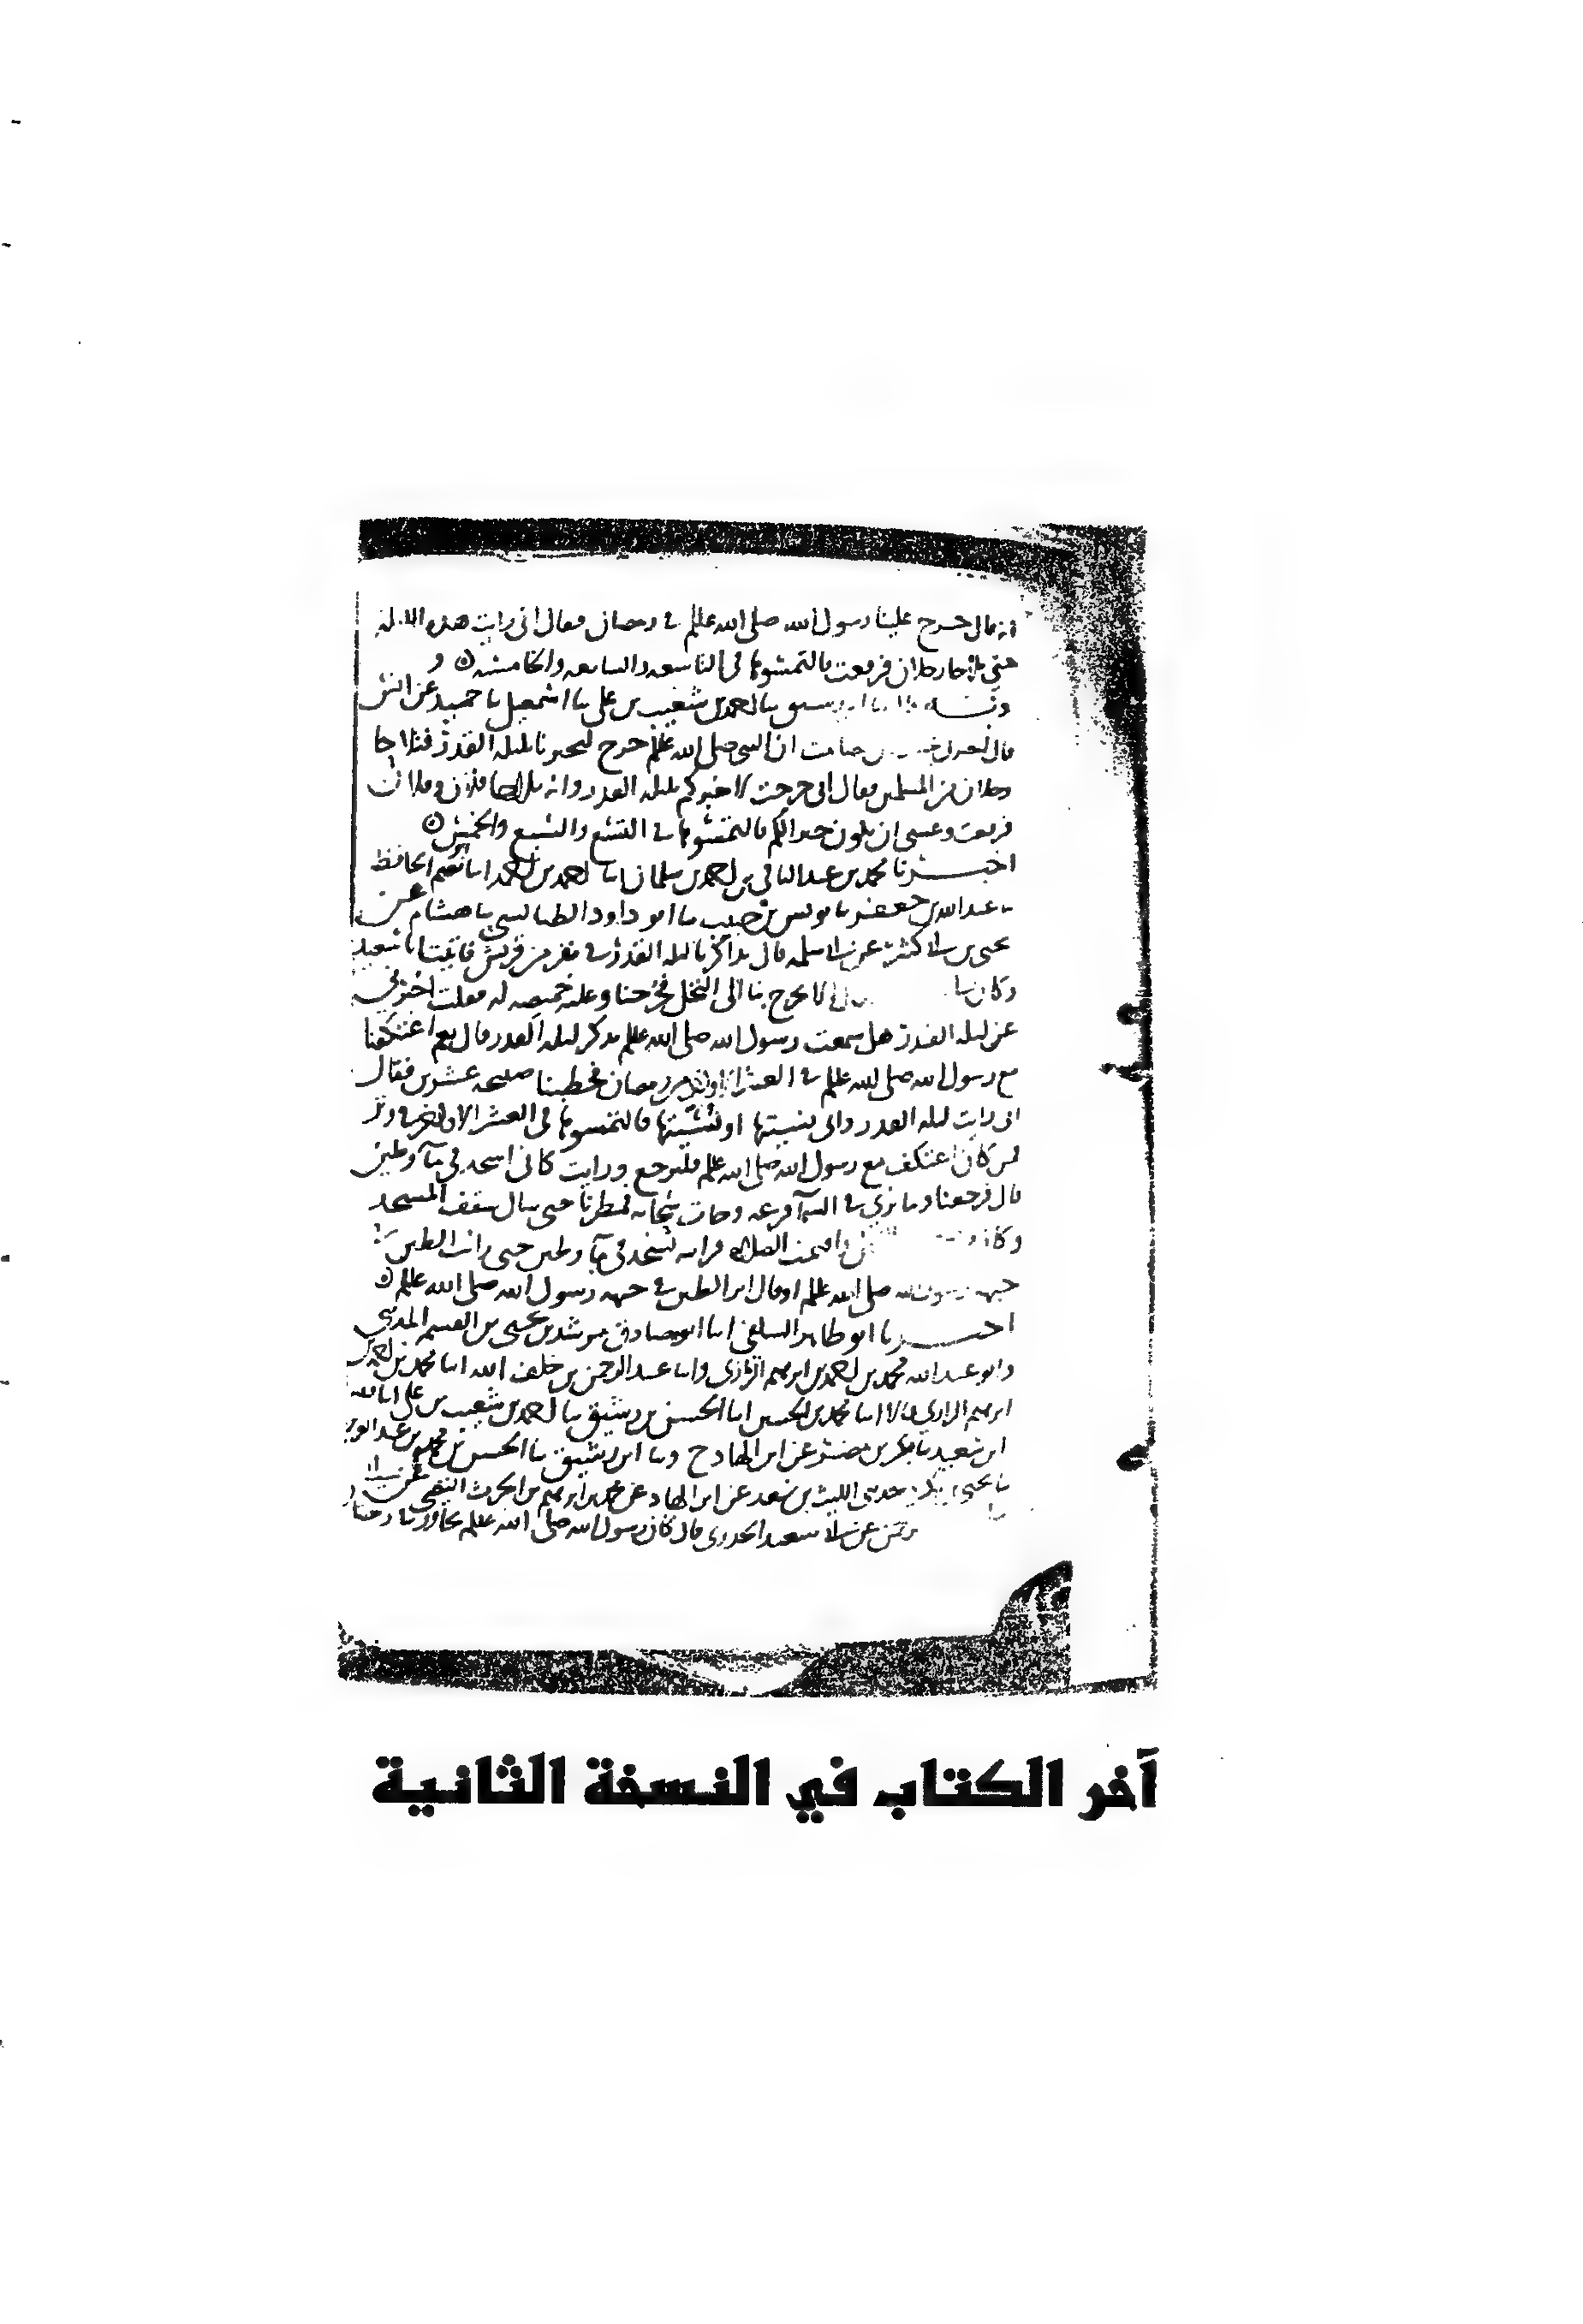 انه قال خرج علينا رسول الله صلى الله علىم فى رمضان فقال انى رايت هذه الليلة
حتى تلاحا رجلان فرفعت فالتمسوها فى التاسعه والسابعه والخامسه
شعيب بن على نا اسمعيل نا حميد عن انس
ان النبي صلى الله علىم خرج ليخبرنا بليله القدر فتلاحا
رجلان من المسلمين فقال انى خرجت لاخبركم بليله القدر وانه تلاحا فلان وفلان
فرفعت وعسى ان يكون خيرا لكم فالتمسوها فى التسع والسبع والخمس
اخبرنا محمد بن عبد الباقى بن احمد بن سلمان انا احمد بن احمد انا ابو نعيم الحافظ
نا عبد الله بن جعفر نا يونس بن حبيب نا ابو داود الطيالسي نا هشام عن
يحيى بن ابى كثير عن ابى سلمه قال تذاكرنا ليله القدر فى نفر من قريش فاتيت ابا سعيد
وكان لنا الا تخرج بنا الى النخل فخرجنا وعليه خميصه له فقلت اخبرنى
عن ليله القدر هل سمعت رسول الله صلى الله علىم يذكر ليله القدر قال نعم اعتكفنا
مع رسول الله صلى الله علىم فى العشر من رمضان فخطبنا صبيحه عشرين فقال
انى رايت ليله القدر وانى نسيتها او نسيتها فالتمسوها فى العشر الاواخر فى وتر
فمن كان اعتكف مع رسول الله صلى الله علىم فليرجع ورايت كانى اسجد فى مآ وطين
قال فرجعنا وما نرى فى السمآ قزعه وجات سحابه فمطرنا حتى سال سقف المسجد
وكان واقيمت الصلاه فرايته يسجد فى مآ وطين حتى رايت الطين فى
جبهه رسول الله صلى الله علىم او قال اثر الطين فى جبهه رسول الله صلى الله علىم
اخبرنا ابو طاهر السلفى انا ابو صادق مرشد بن يحيى بن القسم المدينى
وابو عبد الله محمد بن احمد بن ابرهيم الرازى وانا عبد الرحمن بن خلف الله انا محمد بن احمد بن
ابرهيم الرازى قالا انا محمد بن الحسين انا الحسن بن رشيق نا احمد بن شعيب بن على
ابن سعيد نا بكر بن مضر عن ابن الهاد ح ونا ابن رشيق نا الحسن بن محمد بن عبد العزيز
نا يحيى بن بكير حدثنى الليث بن سعد عن ابن الهاد عن محمد بن ابرهيم بن الحرث التيمى عن ابى
عن ابى سعيد الخدرى قال كان رسول الله صلى الله علىم يجاور
آخر الكتاب في النسخة الثانية